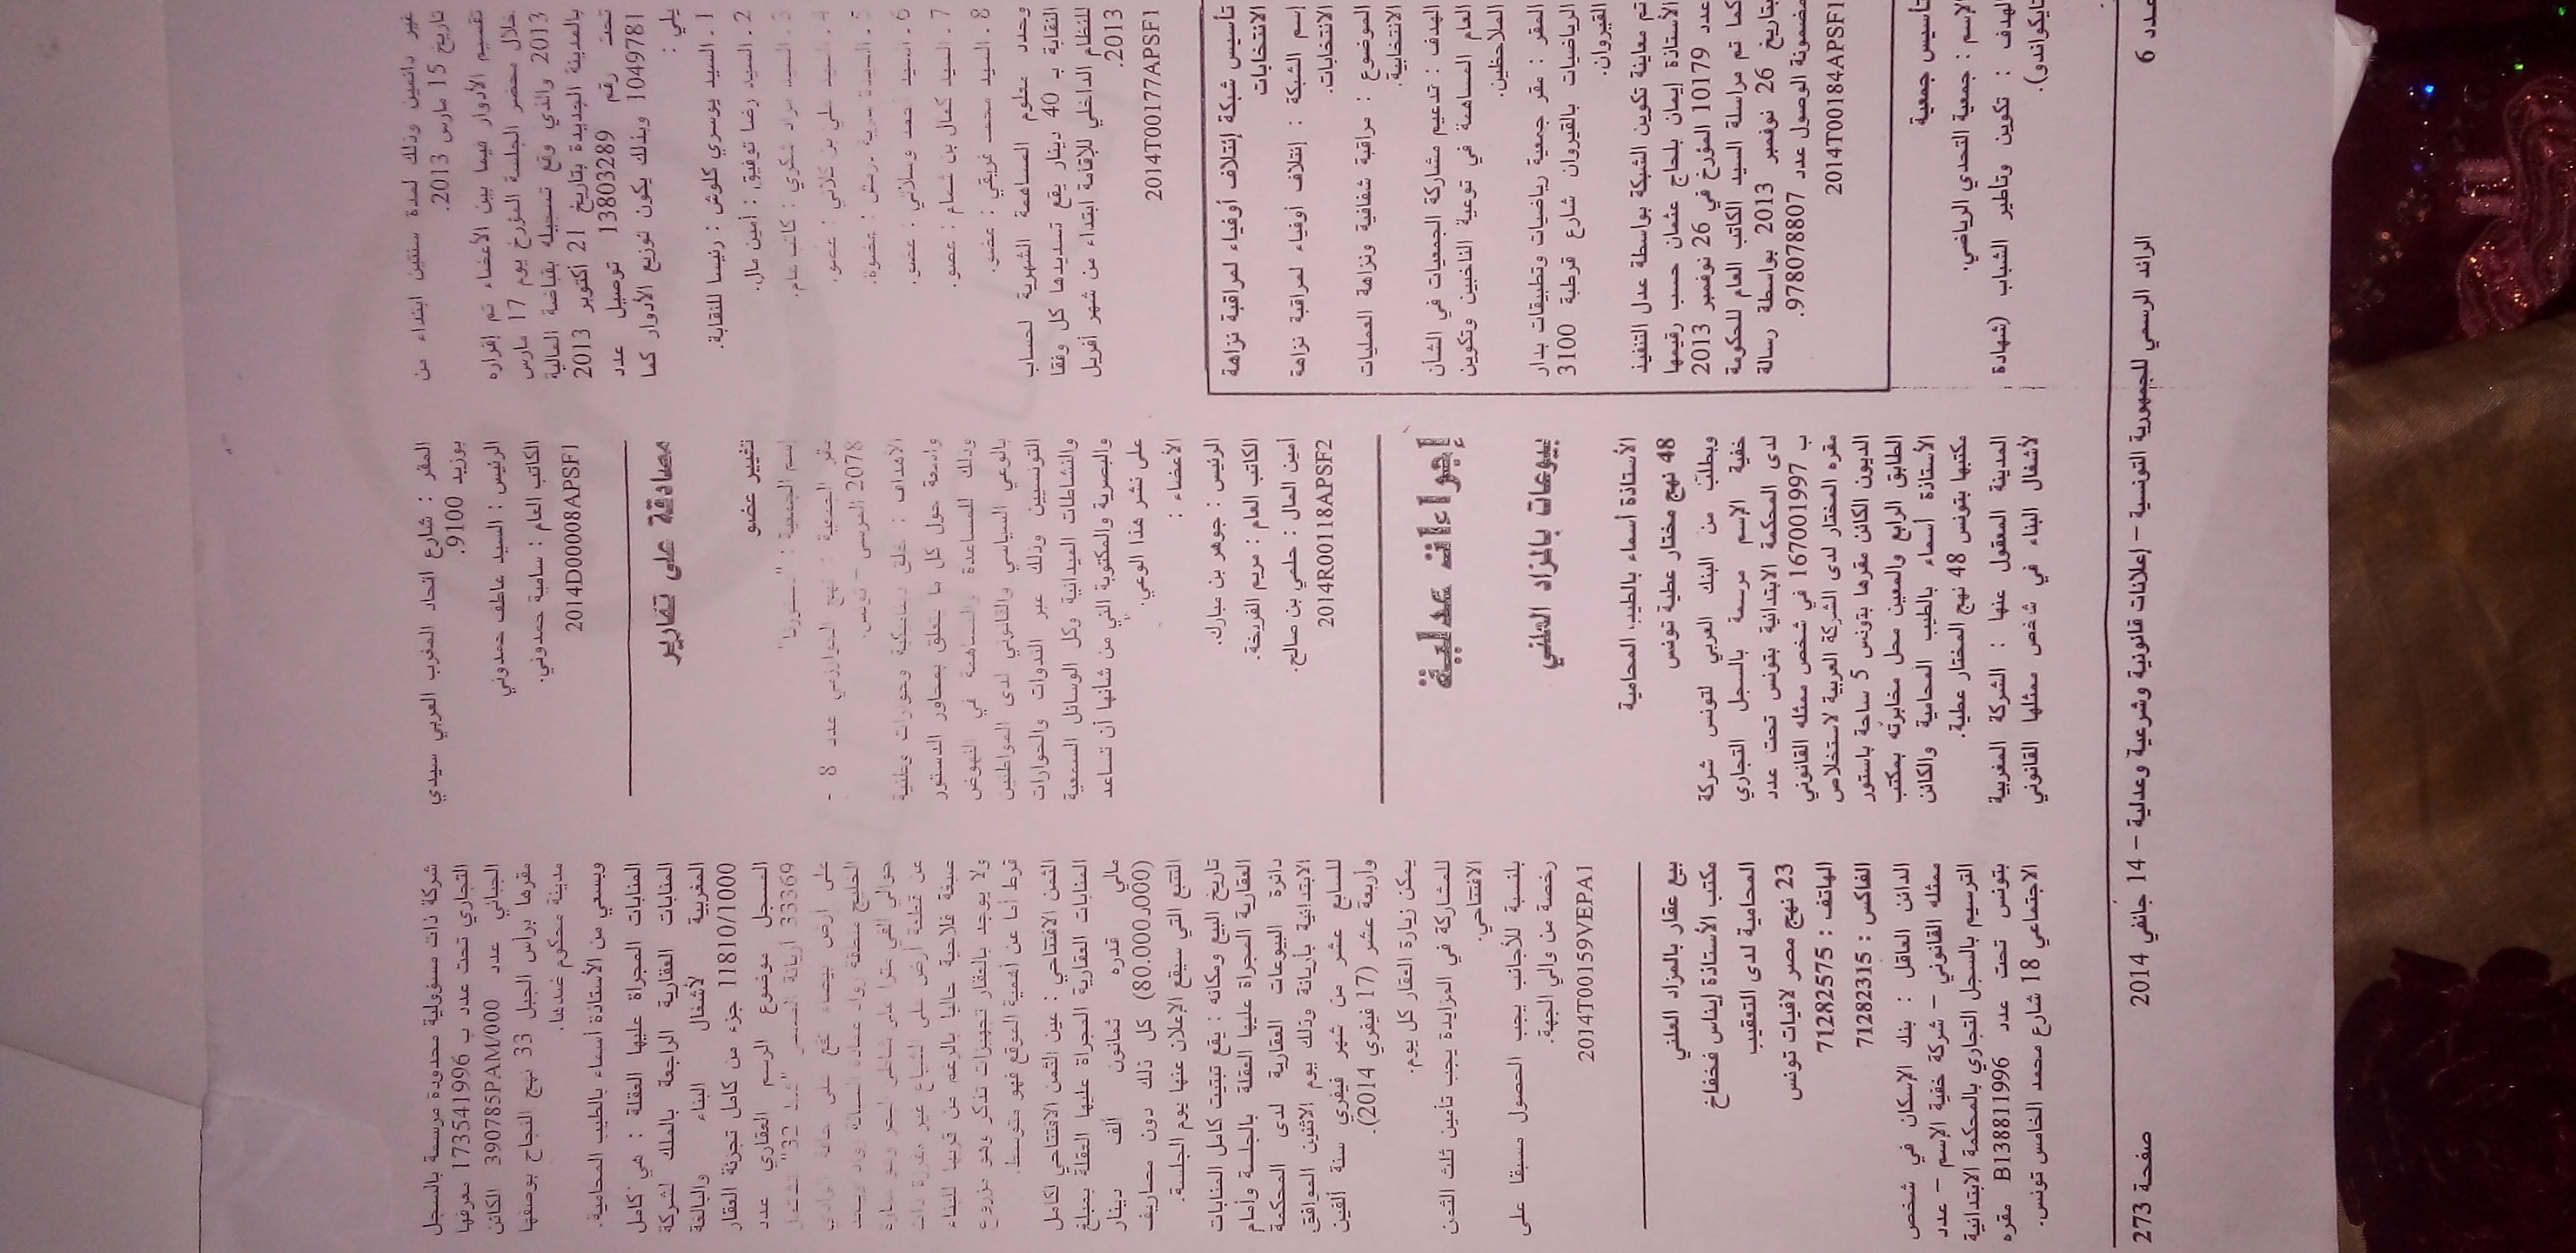 غير دائمين وذلك لمدة سنتين ابتداء من
تاريخ 15 مارس 2013.
تقسيم الأدوار فيما بين الأعضاء تم إقراره
خلال محضر الجلسة المؤرخ يوم 17 مارس
2013 والذي وقع تسجيله بقباضة المالية
بالمدينة الجديدة بتاريخ 21 أكتوبر 2013
تحت رقم 13803289 توصيل عدد
10499781 وبذلك يكون توزيع الأدوار كما
يلي :
1 ـ السيد يوسري كلوش : رئيسا للنقابة.
2 ـ السيد رضا توفيق : أمين مال.
3 ـ السيد مراد شكري : كاتب عام.
4 ـ السيد علي بن : عضو.
5 ـ السيدة : عضوة.
6 ـ السيد أحمد وسلاتي : عضو.
7 ـ السيد كمال بن شمام : عضو.
8 ـ السيد محمد غريقي : عضو.
وحدد معلوم المساهمة الشهرية لحساب
النقابة بـ 40 دينار يقع تسديدها كل وفقا
للنظام الداخلي للإقامة ابتداء من شهر أفريل
2013.
2014T00177APSF1
تأسيس شبكة إئتلاف أوفياء لمراقبة نزاهة
الانتخابات
إسم الشبكة : إئتلاف أوفياء لمراقبة نزاهة
الانتخابات.
الموضوع : مراقبة شفافية ونزاهة العمليات
الانتخابية.
الهدف : تدعيم مشاركة الجمعيات في الشأن
العام المساهمة في توعية الناخبين وتكوين
الملاحظين.
المقر : مقر جمعية رياضيات وتطبيقات بدار
الرياضيات بالقيروان شارع قرطبة 3100
القيروان.
تم معاينة تكوين الشبكة بواسطة عدل التنفيذ
الأستاذة إيمان بلحاج عثمان حسب رقيمها
عدد 10179 المؤرخ في 26 نوفمبر 2013
كما تم مراسلة السيد الكاتب العام للحكومة
بتاريخ 26 نوفمبر 2013 بواسطة رسالة
مضمونة الوصول عدد 978078807.
2014T00184APSF1
تأسيس جمعية
الإسم : جمعية التحدي الرياضي.
الهدف : تكوين وتاطير الشباب (شهادة
تايكواندو).
المقر : شارع اتحاد المغرب العربي سيدي
بوزيد 9100.
الرئيس : السيد عاطف حمدوني
الكاتب العام : سامية حمدوني.
2014D00008APSF1
مصادقة على تقارير
تغيير عضو
إسم الجمعية :
مقر الجمعية : نهج الخوارزمي عدد 8 -
2078 المرسى - تونس.
الأهداف : خلق ديناميكية وحوارات وطنية
واسعة حول كل ما يتعلق بمحاور الدستور
وذلك للمساعدة والمساهمة في النهوض
بالوعي السياسي والقانوني لدى المواطنين
التونسيين وذلك عبر الندوات والحوارات
والنشاطات الميدانية وكل الوسائل السمعية
والبصرية والمكتوبة التي من شأنها أن تساعد
على نشر هذا الوعي.
الأعضاء :
الرئيس : جوهر بن مبارك.
الكاتب العام : مريم الفريخة.
أمين المال : حلمي بن صالح.
2014R00118APSF2
إجراءات عدلية
بيوعات بالمزاد العلني
الأستاذة أسماء بالطيب المحامية
48 نهج مختار عطية تونس
وبطلب من البنك العربي لتونس شركة
خفية الإسم مرسمة بالسجل التجاري
لدى المحكمة الابتدائية بتونس تحت عدد
ب 167001997 في شخص ممثله القانوني
مقره المختار لدى الشركة العربية لاستخلاص
الديون الكائن مقرها بتونس 5 ساحة باستور
الطابق الرابع والمعين محل مخابرته بمكتب
الأستاذة أسماء بالطيب المحامية والكائن
مكتبها بتونس 48 نهج المختار عطية.
المدينة المعقول عنها : الشركة المغربية
لأشغال البناء في شخص ممثلها القانوني
شركة ذات مسؤولية محدودة مرسمة بالسجل
التجاري تحت عدد ب 173541996 معرفها
الجبائي عدد 390785PAM/000 الكائن
مقرها برأس الجبل 33 نهج النجاح بوصفها
مدينة محكوم ضدها.
وبسعي من الأستاذة أسماء بالطيب المحامية.
المنابات المجراة عليها العقلة : هي كامل
المنابات العقارية الراجعة بالملك لشركة
المغربية لأشغال البناء والبالغة
11810/1000 جزء من كامل تجزئة العقار
المسجل موضوع الرسم العقاري عدد
33369 أريانة المسمى "هند 32"
على أرض بيضاء تقع على حافة
عن قطعة أرض على الشياع غير مفرزة ذات
صبغة فلاحية حاليا بالرغم عن قربها للبناء
ولا يوجد بالعقار تجهيزات تذكر وهو مزروع
قرط أما عن أهمية الموقع فهو متوسط.
الثمن الافتتاحي : عين الثمن الافتتاحي لكامل
المنابات العقارية المجراة عليها العقلة بمبلغ
مالي قدره ثمانون ألف دينار
(80.000,000د) كل ذلك دون مصاريف
التتبع التي سيقع الإعلان عنها يوم الجلسة.
تاريخ البيع ومكانه : يقع تبتيت كامل المنابات
العقارية المجراة عليها العقلة بالجلسة وأمام
دائرة البيوعات العقارية لدى المحكمة
الابتدائية بأريانة وذلك يوم الاثنين الموافق
للسابع عشر من شهر فيفري سنة ألفين
وأربعة عشر (17 فيفري 2014).
يمكن زيارة العقار كل يوم.
للمشاركة في المزايدة يجب تأمين ثلث الثمن
الافتتاحي.
بلنسبة للأجانب يجب الحصول مسبقا على
رخصة من والي الجهة.
2014T00159VEPA1
بيع عقار بالمزاد العلني
مكتب الأستاذة إيناس فخفاخ
المحامية لدى التعقيب
23 نهج مصر لافيات تونس
الهاتف : 71282575
الفاكس : 71282315
الدائن العاقل : بنك الإسكان في شخص
ممثله القانوني - شركة خفية الإسم - عدد
الترسيم بالسجل التجاري بالمحكمة الابتدائية
بتونس تحت عدد B138811996 مقره
الاجتماعي 18 شارع محمد الخامس تونس.
عدد 6
الرائد الرسمي للجمهورية التونسية – إعلانات قانونية وشرعية وعدلية – 14 جانفي 2014
صفحة 273